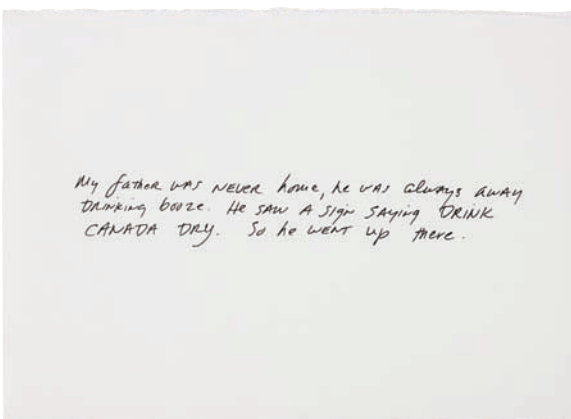 My father was never home, he was always away
drinking booze. He saw a sign saying DRINK
CANADA DRY. So he went up there.